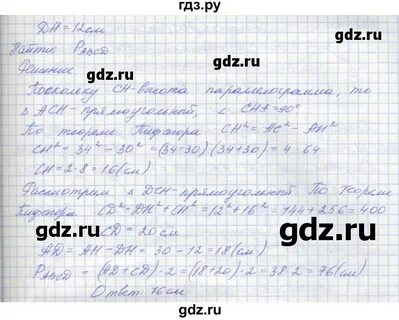 гдз.ру
DH = 12см
Найти: PABCD
Решение.
Поскольку CH-высота параллелограмма, то
△ ACH-прямоугольный, ∠ CHA=90°
По теореме Пифагора CH² = AC² - AH²
CH² = 34² - 30² = (34-30)(34+30) = 4·64
CH = 2·8 = 16(см)
Рассмотрим △ DCH-прямоугольный. По теореме
Пифагора CD² = DH² + CH² = 12² + 16² = 144 + 256 = 400
CD = 20 см
AD = AH - DH = 30 - 12 = 18(см)
PABCD = (AD + CD)·2 = (18+20)·2 = 38·2 = 76(см)
Ответ: 76см
gdz.ru
gdz.ru
gdz.ru